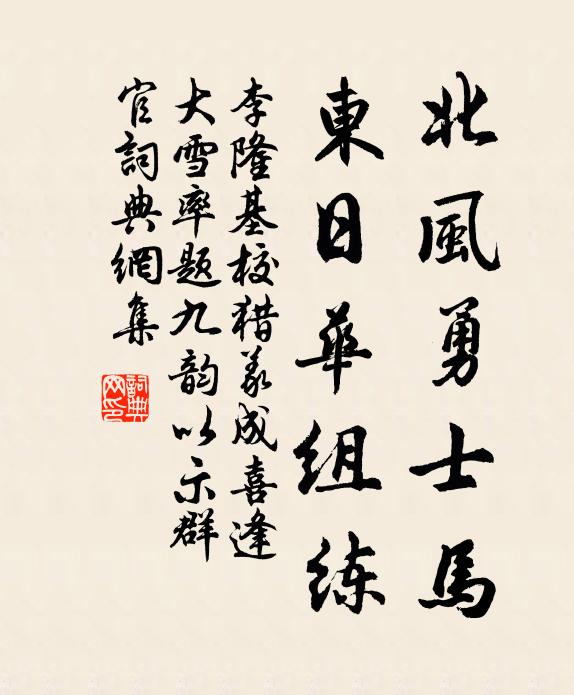 北風勇士馬
東日華組练
李隆基校猎义成喜逢
大雪率题九韵以示群
官詞典網集
詞典
网印